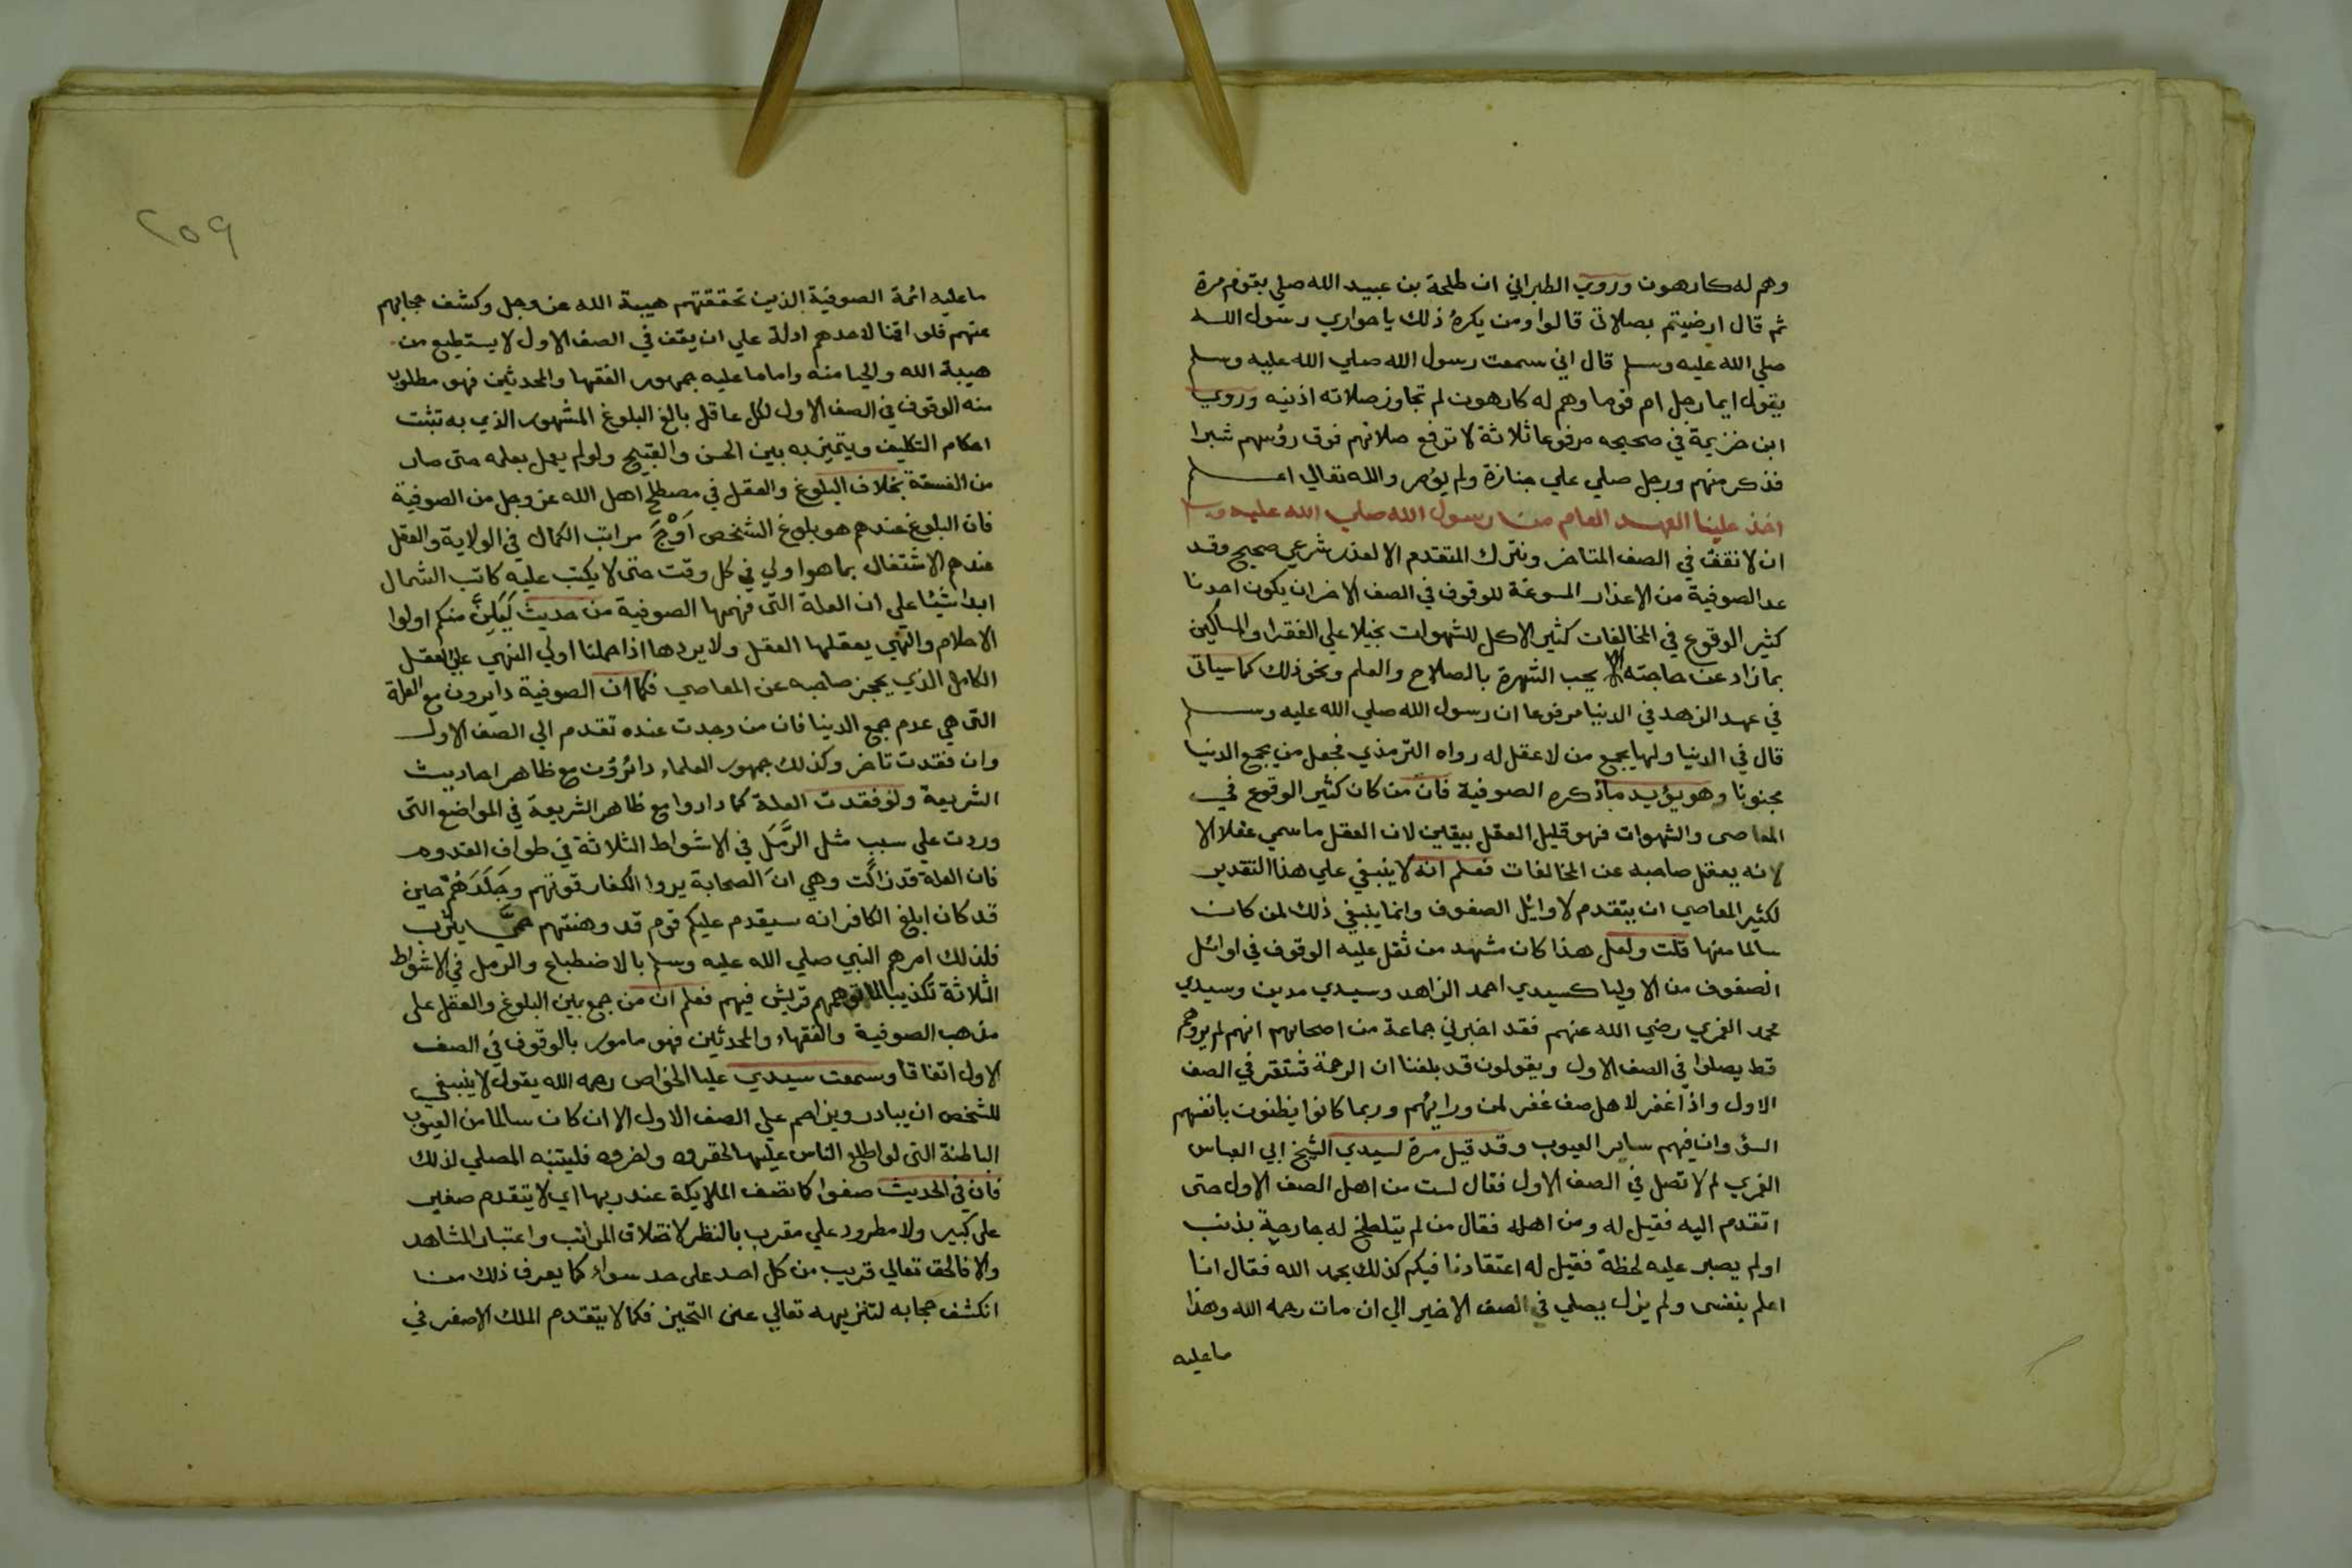 وهم له كارهون وروي الطبراني ان طلحة بن عبيد الله صلي بقوم مرة
ثم قال ارضيتم بصلاتي قالوا ومن يكره ذلك يا حواري رسول الله
صلي الله عليه وسلم قال اني سمعت رسول الله صلي الله عليه وسلم
يقول ايما رجل ام قوما وهم له كارهون لم تجاوز صلاته اذنيه وروي
ابن خزيمة في صحيحه مرفوعا ثلاثة لا ترفع صلاتهم فوق رؤسهم شبرا
فذكر منهم ورجل صلي علي جنازة ولم يؤمر والله تعالي اعلم
اخذ علينا العهد العام من رسول الله صلي الله عليه وسلم
ان لا نقف في الصف المتاخر ونترك المتقدم الا لعذر شرعي صحيح وقد
عد الصوفية من الاعذار المسوغة للوقوف في الصف الاخر ان يكون احدنا
كثير الوقوع في المخالفات كثير الاكل للشهوات بخيلا علي الفقرا والمساكين
بما زاد عن حاجته الا يحب الشهرة بالصلاح والعلم ونحو ذلك كما سياتي
في عهد الزهد في الدنيا مرفوعا ان رسول الله صلي الله عليه وسلم
قال في الدنيا ولها يجمع من لا عقل له رواه الترمذي فجعل من يجمع الدنيا
مجنونا وهو يؤيد ما ذكره الصوفية فان من كان كثير الوقوع في
المعاصي والشهوات فهو قليل العقل بيقين لان العقل ما سمي عقلا الا
لانه يعقل صاحبه عن المخالفات فعلم انه لا ينبغي علي هذا التقدير
لكثير المعاصي ان يتقدم لاوائل الصفوف وانما ينبغي ذلك لمن كان
سالما منها قلت ولعل هذا كان مشهد من ثقل عليه الوقوف في اوائل
الصفوف من الاوليا كسيدي احمد الزاهد وسيدي مدين وسيدي
محمد الغمري رضي الله عنهم فقد اخبرني جماعة من اصحابهم انهم لم يروهم
قط يصلوا في الصف الاول ويقولون قد بلغنا ان الرحمة تستقر في الصف
الاول واذا غفر لاهل صف غفر لمن ورائهم وربما كانوا يظنون بانفسهم
السؤ وان فيهم ساير العيوب وقد قيل مرة لسيدي الشيخ ابي العباس
الغمري لم لا تصل في الصف الاول فقال لست من اهل الصف الاول حتي
اتقدم اليه فقيل له ومن اهله فقال من لم يتلطخ له جارحة بذنب
او لم يصبر عليه لحظة فقيل له اعتقادنا فيكم كذلك بحمد الله فقال انا
اعلم بنفسي ولم يزل يصلي في الصف الاخير الي ان مات رحمه الله وهذا
ما عليه
٢٥٩
ما عليه ائمة الصوفية الذين تحققتهم هيبة الله عز وجل وكشف حجابهم
عنهم فلو اقمنا لاحدهم ادلة علي ان يقف في الصف الاول لا يستطيع من
هيبة الله والحيا منه واما ما عليه جمهور الفقها والمحدثين فهو مطلوب
منه الوقوف في الصف الاول لكل عاقل بالغ البلوغ المشهور الذي به تثبت
احكام التكليف ويتميز به بين الحسن والقبيح ولو لم يعمل بعلمه حتي صار
من الفسقة بخلاف البلوغ والعقل في مصطلح اهل الله عز وجل من الصوفية
فان البلوغ عندهم هو بلوغ الشخص اَوْجَ مراتب الكمال في الولاية والعقل
عندهم الاشتغال بما هو اولي في كل وقت حتي لا يكتب عليه كاتب الشمال
ابدا شيئا علي ان العلة التي فهمها الصوفية من حديث لَيَلِيَنَّ منكم اولوا
الاحلام والنهي يعقلها العقل ولا يردها اذا حملنا اولي النهي علي العقل
الكامل الذي يحجز صاحبه عن المعاصي فكما ان الصوفية دايرون مع العلة
التي هي عدم جمع الدنيا فان من وجدت عنده تقدم الي الصف الاول
وان فقدت تاخر وكذلك جمهور العلماء دائرون مع ظاهر احاديث
الشريعة ولو فقدت العلة كما داروا مع ظاهر الشريعة في المواضع التي
وردت علي سبب مثل الرَّمَلَ في الاشواط الثلاثة في طواف القدوم
فان العلة قد زالت وهي ان الصحابة يروا الكفار قوتهم وجَلَدَهُمْ حين
قد كان ابلغ الكافر انه سيقدم عليكم قوم قد وهنتهم حمَّي يثرب
فلذلك امرهم النبي صلي الله عليه وسلم بالاضطباع والرمل في الاشواط
الثلاثة تكذيبا لما توهمهم قريش فيهم فعلم ان من جمع بين البلوغ والعقل علي
مذهب الصوفية والفقهاء والمحدثين فهو مامور بالوقوف في الصف
الاول اتفاقا وسمعت سيدي عليا الخواص رحمه الله يقول لا ينبغي
للشخص ان يبادر ويزاحم علي الصف الاول الا ان كان سالما من العيوب
الباطنة التي لو اطلع الناس عليها لحقروه واخروه فليتنبه المصلي لذلك
فان في الحديث صفوا كما تصف الملايكة عند ربها اي لا يتقدم صغير
علي كبير ولا مطرود علي مقرب بالنظر لاختلاف المراتب واعتبار المشاهد
والا فالحق تعالي قريب من كل احد علي حد سواء كما يعرف ذلك من
انكشف حجابه لتنزيهه تعالي عن التحيز فكما لا يتقدم الملك الاصغر في